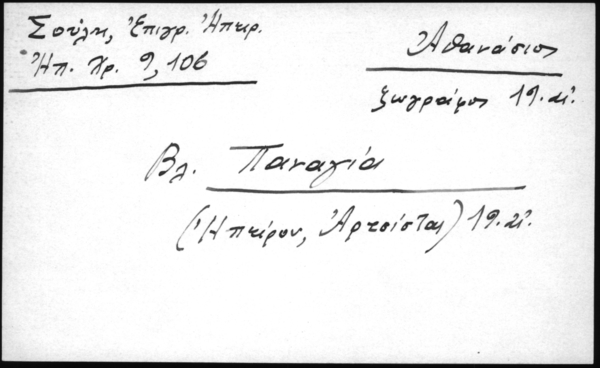 Σούλη, Ἐπιγρ. Ἠπειρ.
Ἠπ. Χρ. 9, 106
Ἀθανάσιος
ζωγράφος 19. αἰ.
Βλ. Παναγία
(Ἠπείρου, Ἀρτσίστα) 19. αἰ.